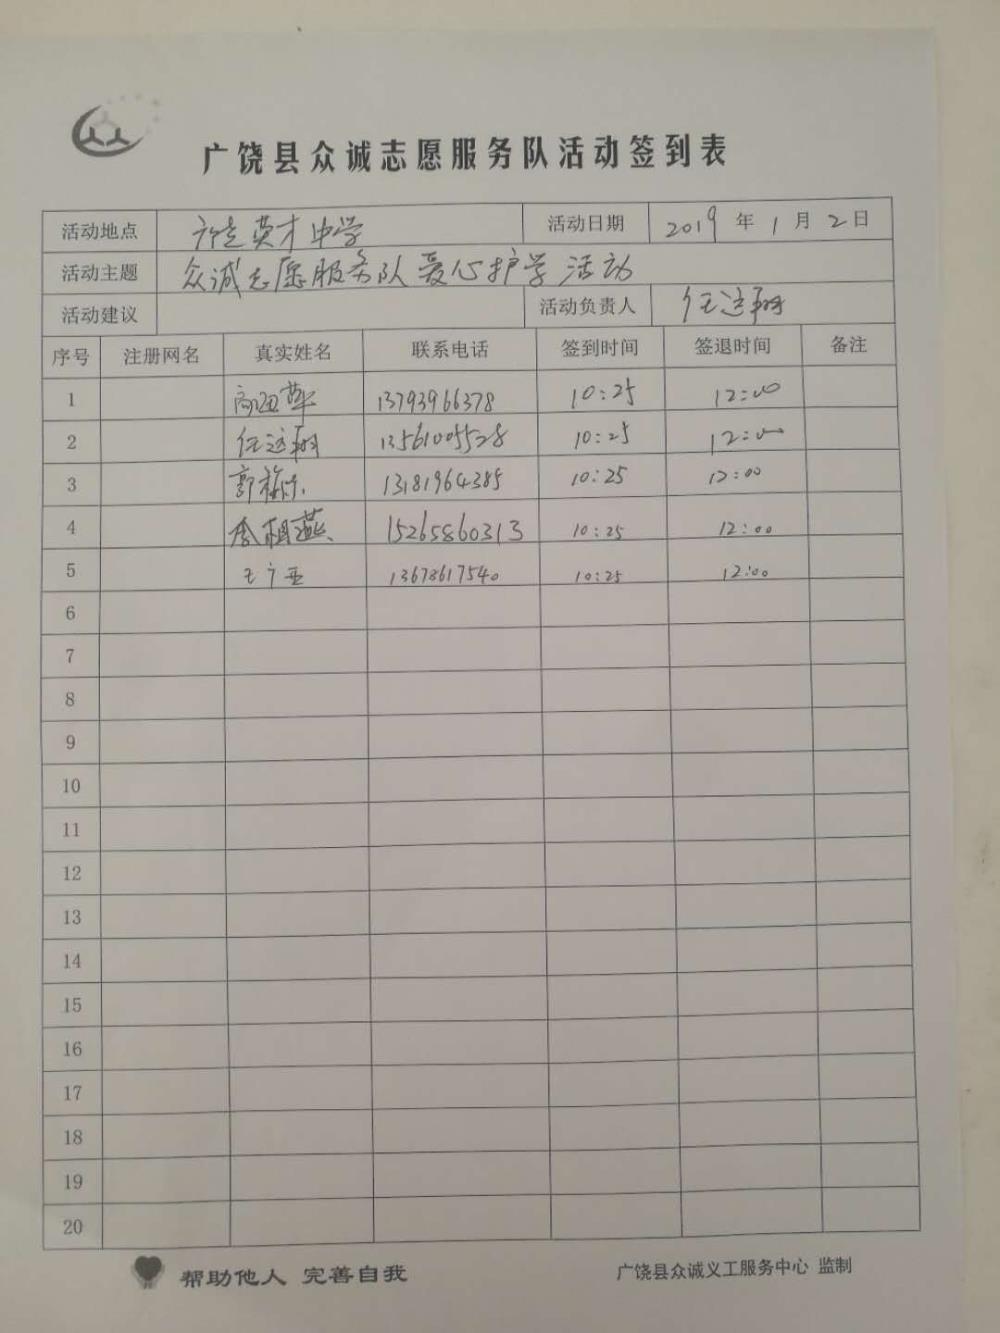 广饶县众诚志愿服务队活动签到表
活动地点 英才中学 活动日期 2019年1月2日
活动主题 众诚志愿服务队爱心护学活动
活动建议 活动负责人
序号 注册网名 真实姓名 联系电话 签到时间 签退时间 备注
1 13793966378 10:25 12:00
2 13561005528 10:25 12:00
3 13181964385 10:25 12:00
4 15265860313 10:25 12:00
5 13678617540 10:25 12:00
6
7
8
9
10
11
12
13
14
15
16
17
18
19
20
帮助他人 完善自我 广饶县众诚义工服务中心 监制